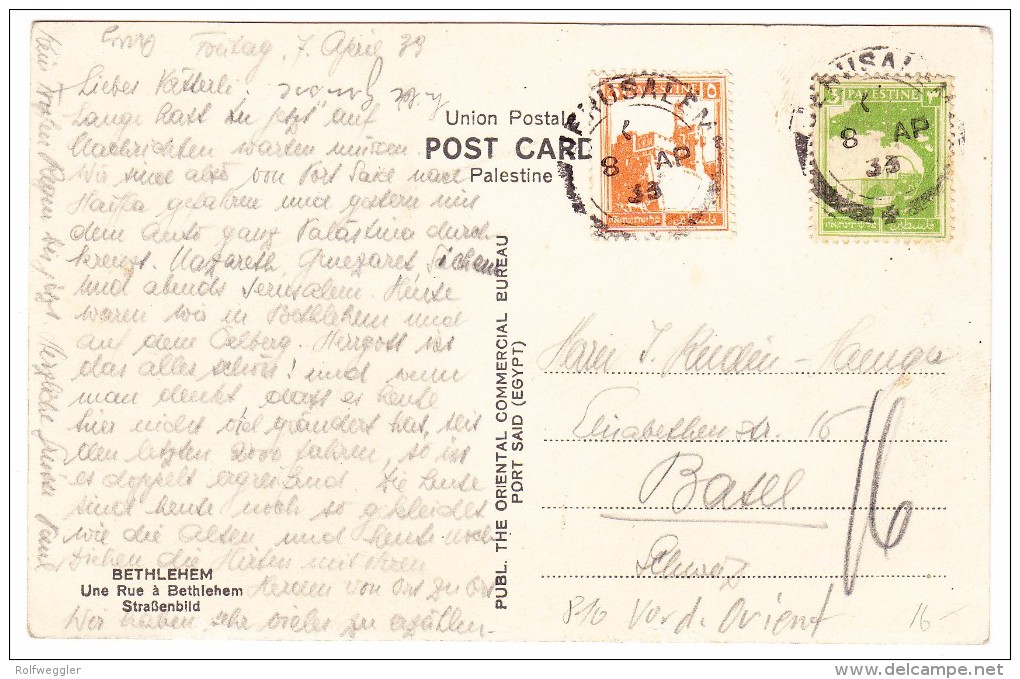 Freitag, 7. April 33
Liebes Vätterli!
Lange hast du jetzt auf
Nachrichten warten müssen.
Wir sind also von Port Said nach
Haifa gefahren und gestern mit
dem Auto ganz Palästina durch
kreuzt. Nazareth, Sichem
und abends Jerusalem. Heute
waren wir in Bethlehem und
auf dem Oelberg. Herrgott ist
das alles schön! und wenn
man denkt, dass es heute
hier nicht viel geändert hat, seit
den letzten 2000 Jahren, so ist
es doppelt ergreifend. Die Leute
sind heute noch so gekleidet
wie die Alten und heute noch
ziehen die Hirten mit ihren
Herden von Ort zu Ort
Wir haben sehr vieles zu erzählen.
Herzliche Grüsse Paul
BETHLEHEM
Une Rue à Bethlehem
Straßenbild
Union Postale
POST CARD
Palestine
PUBL. THE ORIENTAL COMMERCIAL BUREAU
PORT SAID (EGYPT)
PALESTINE
JERUSALEM
8 AP
33
PALESTINE
JERUSALEM
8 AP
33
Herrn J.
Elisabethenstr. 16
Basel
Schweiz
16
810 Vord. Orient 16-
Rolfweggler
delcampe.net